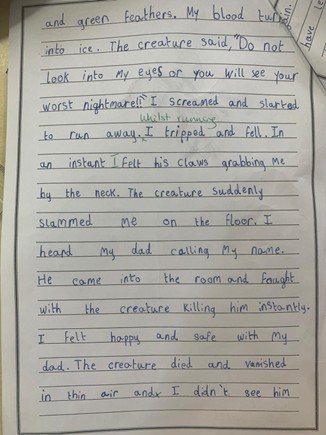 and green feathers. My blood turn
into ice. The creature said, "Do not
look into my eyes or you will see your
worst nightmare!!" I screamed and started
whilst running
to run away. I tripped and fell. In
an instant I felt his claws grabbing me
by the neck. The creature suddenly
slammed me on the floor. I
heard my dad calling my name.
He came into the room and fought
with the creature killing him instantly.
I felt happy and safe with my
dad. The creature died and vanished
in thin air and I didn't see him
have